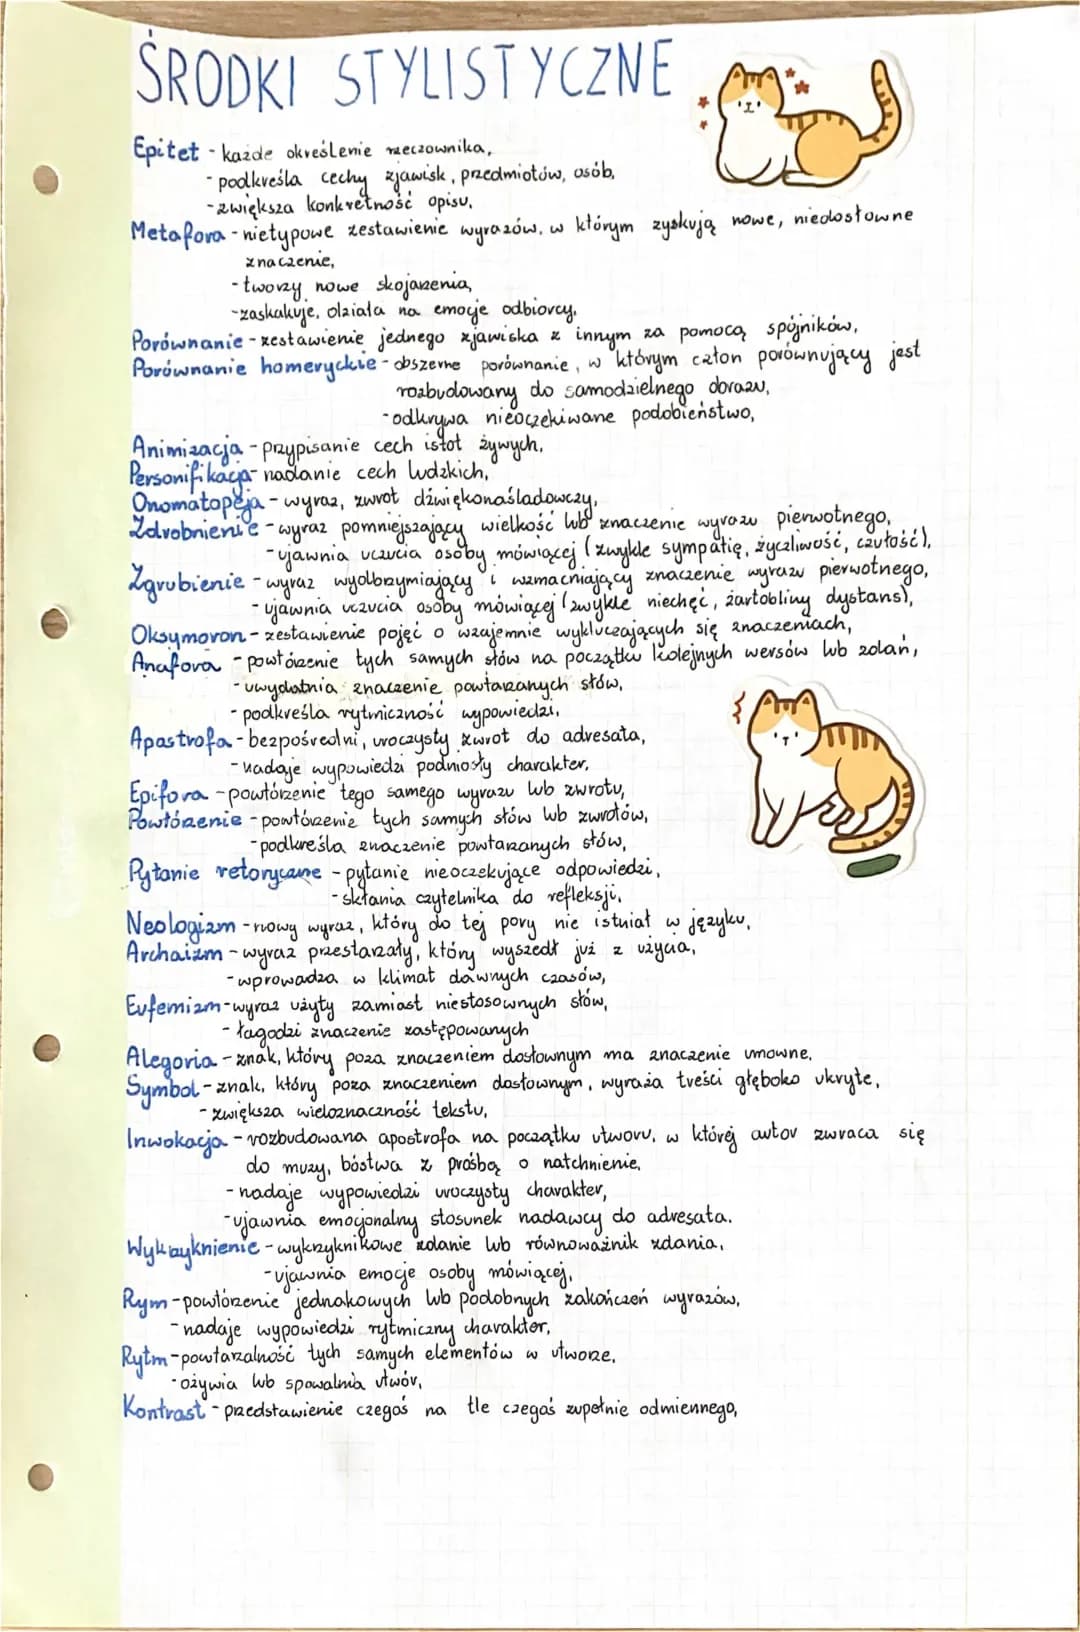 ŚRODKI STYLISTYCZNE
Epitet - każde określenie rzeczownika,
- podkreśla cechy zjawisk, przedmiotów, osób,
- zwiększa konkretność opisu,
Metafora - nietypowe zestawienie wyrazów, w którym zyskują nowe, niedosłowne
znaczenie,
- tworzy nowe skojarzenia,
- zaskakuje, działa na emocje odbiorcy,
Porównanie - zestawienie jednego zjawiska z innym za pomocą spójników,
Porównanie homeryckie - obszerne porównanie, w którym człon porównujący jest
rozbudowany do samodzielnego obrazu,
- odkrywa nieoczekiwane podobieństwo,
Animizacja - przypisanie cech istot żywych,
Personifikacja - nadanie cech ludzkich,
Onomatopeja - wyraz, zwrot dźwiękonaśladowczy,
Zdrobnienie - wyraz pomniejszający wielkość lub znaczenie wyrazu pierwotnego,
- ujawnia uczucia osoby mówiącej (zwykle sympatię, życzliwość, czułość),
Zgrubienie - wyraz wyolbrzymiający i wzmacniający znaczenie wyrazu pierwotnego,
- ujawnia uczucia osoby mówiącej (zwykle niechęć, żartobliwy dystans),
Oksymoron - zestawienie pojęć o wzajemnie wykluczających się znaczeniach,
Anafora - powtórzenie tych samych słów na początku kolejnych wersów lub zdań,
- uwydatnia znaczenie powtarzanych słów,
- podkreśla rytmiczność wypowiedzi,
Apastrofa - bezpośredni, uroczysty zwrot do adresata,
- nadaje wypowiedzi podniosły charakter,
Epifora - powtórzenie tego samego wyrazu lub zwrotu,
Powtórzenie - powtórzenie tych samych słów lub zwrotów,
- podkreśla znaczenie powtarzanych słów,
Pytanie retoryczne - pytanie nieoczekujące odpowiedzi,
- skłania czytelnika do refleksji,
Neologizm - nowy wyraz, który do tej pory nie istniał w języku,
Archaizm - wyraz przestarzały, który wyszedł już z użycia,
- wprowadza w klimat dawnych czasów,
Eufemizm - wyraz użyty zamiast niestosownych słów,
- łagodzi znaczenie zastępowanych
Alegoria - znak, który poza znaczeniem dosłownym ma znaczenie umowne,
Symbol - znak, który poza znaczeniem dosłownym, wyraża treści głęboko ukryte,
- zwiększa wieloznaczność tekstu,
Inwokacja - rozbudowana apostrofa na początku utworu, w której autor zwraca się
do muzy, bóstwa z prośbą o natchnienie,
- nadaje wypowiedzi uroczysty charakter,
- ujawnia emocjonalny stosunek nadawcy do adresata.
Wykrzyknienie - wykrzyknikowe zdanie lub równoważnik zdania,
- ujawnia emocje osoby mówiącej,
Rym - powtórzenie jednakowych lub podobnych zakończeń wyrazów,
- nadaje wypowiedzi rytmiczny charakter,
Rytm - powtarzalność tych samych elementów w utworze,
- ożywia lub spowalnia utwór,
Kontrast - przedstawienie czegoś na tle czegoś zupełnie odmiennego,